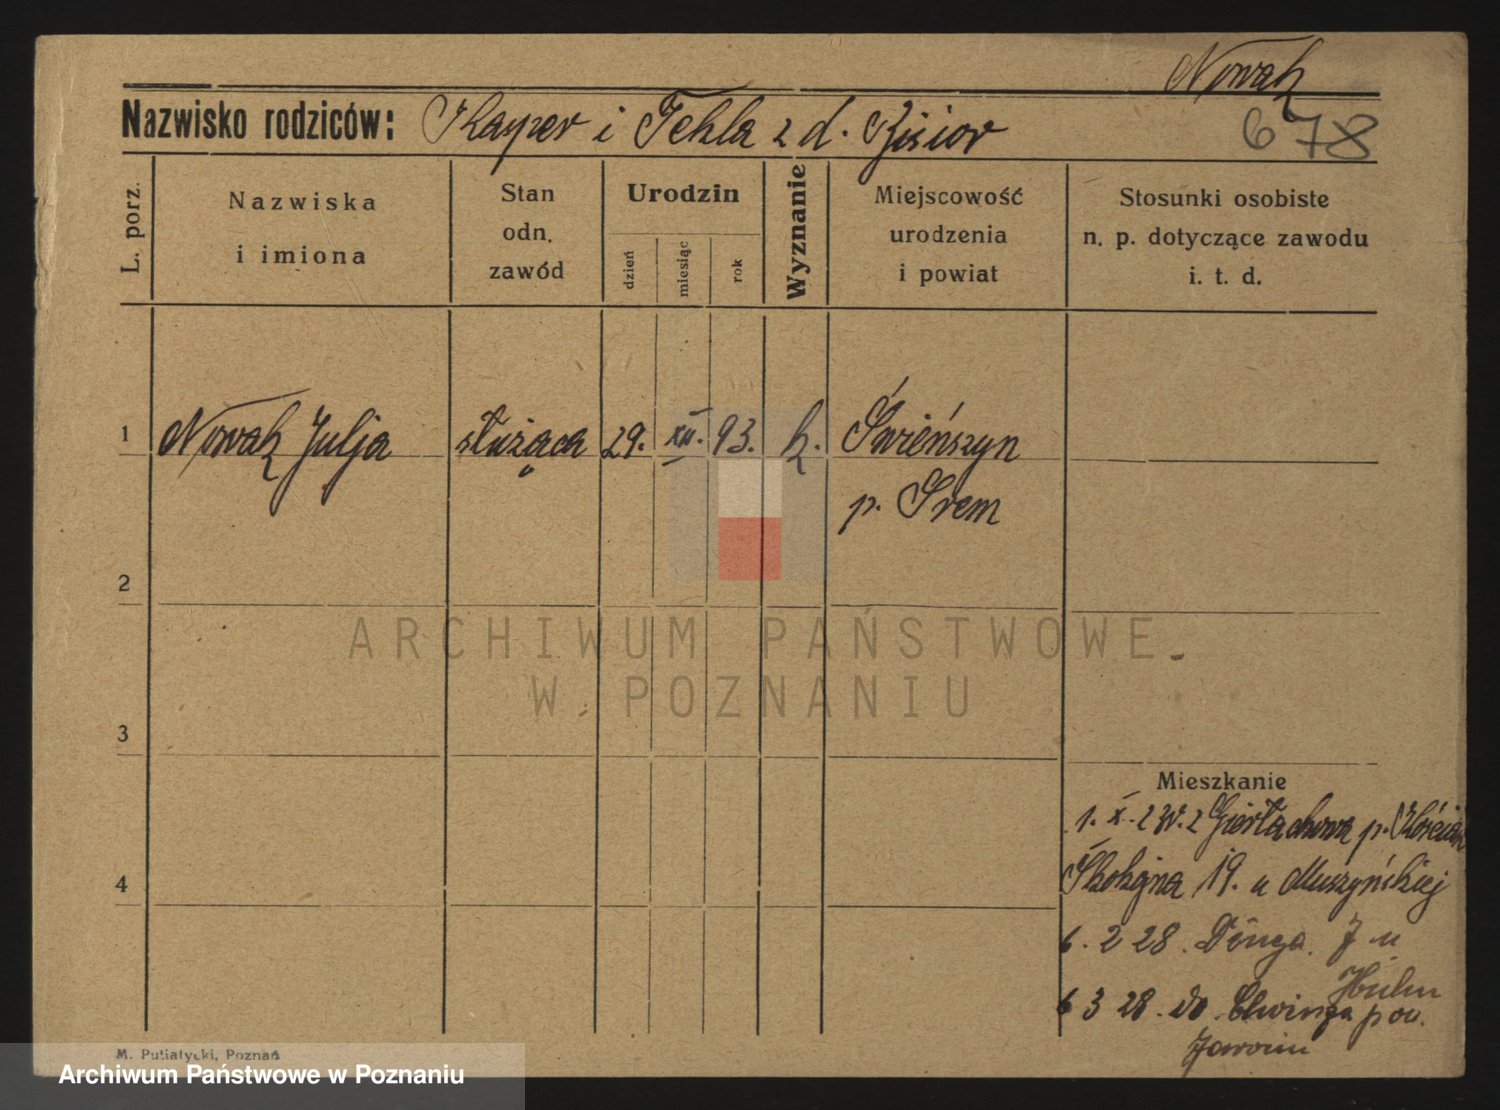 Nowak
Nazwisko rodziców: Kasper i Tekla z d.
678
L. porz.
Nazwiska
i imiona
Stan
odn.
zawód
Urodzin
dzień
miesiąc
rok
Wyznanie
Miejscowość
urodzenia
i powiat
Stosunki osobiste
n. p. dotyczące zawodu
i. t. d.
1 Nowak Julja służąca 29. XII. 93. k. Świeńszyn
p. Śrem
2
ARCHIWUM PAŃSTWOWE
W POZNANIU
3
Mieszkanie
1. X. 2 Gierłachowa p. Kościan
4
19. u Muszyńskiej
6. 2 28. Długa. 7 u
6 3 28. do p ow.
M. Putiatycki, Poznań
Archiwum Państwowe w Poznaniu